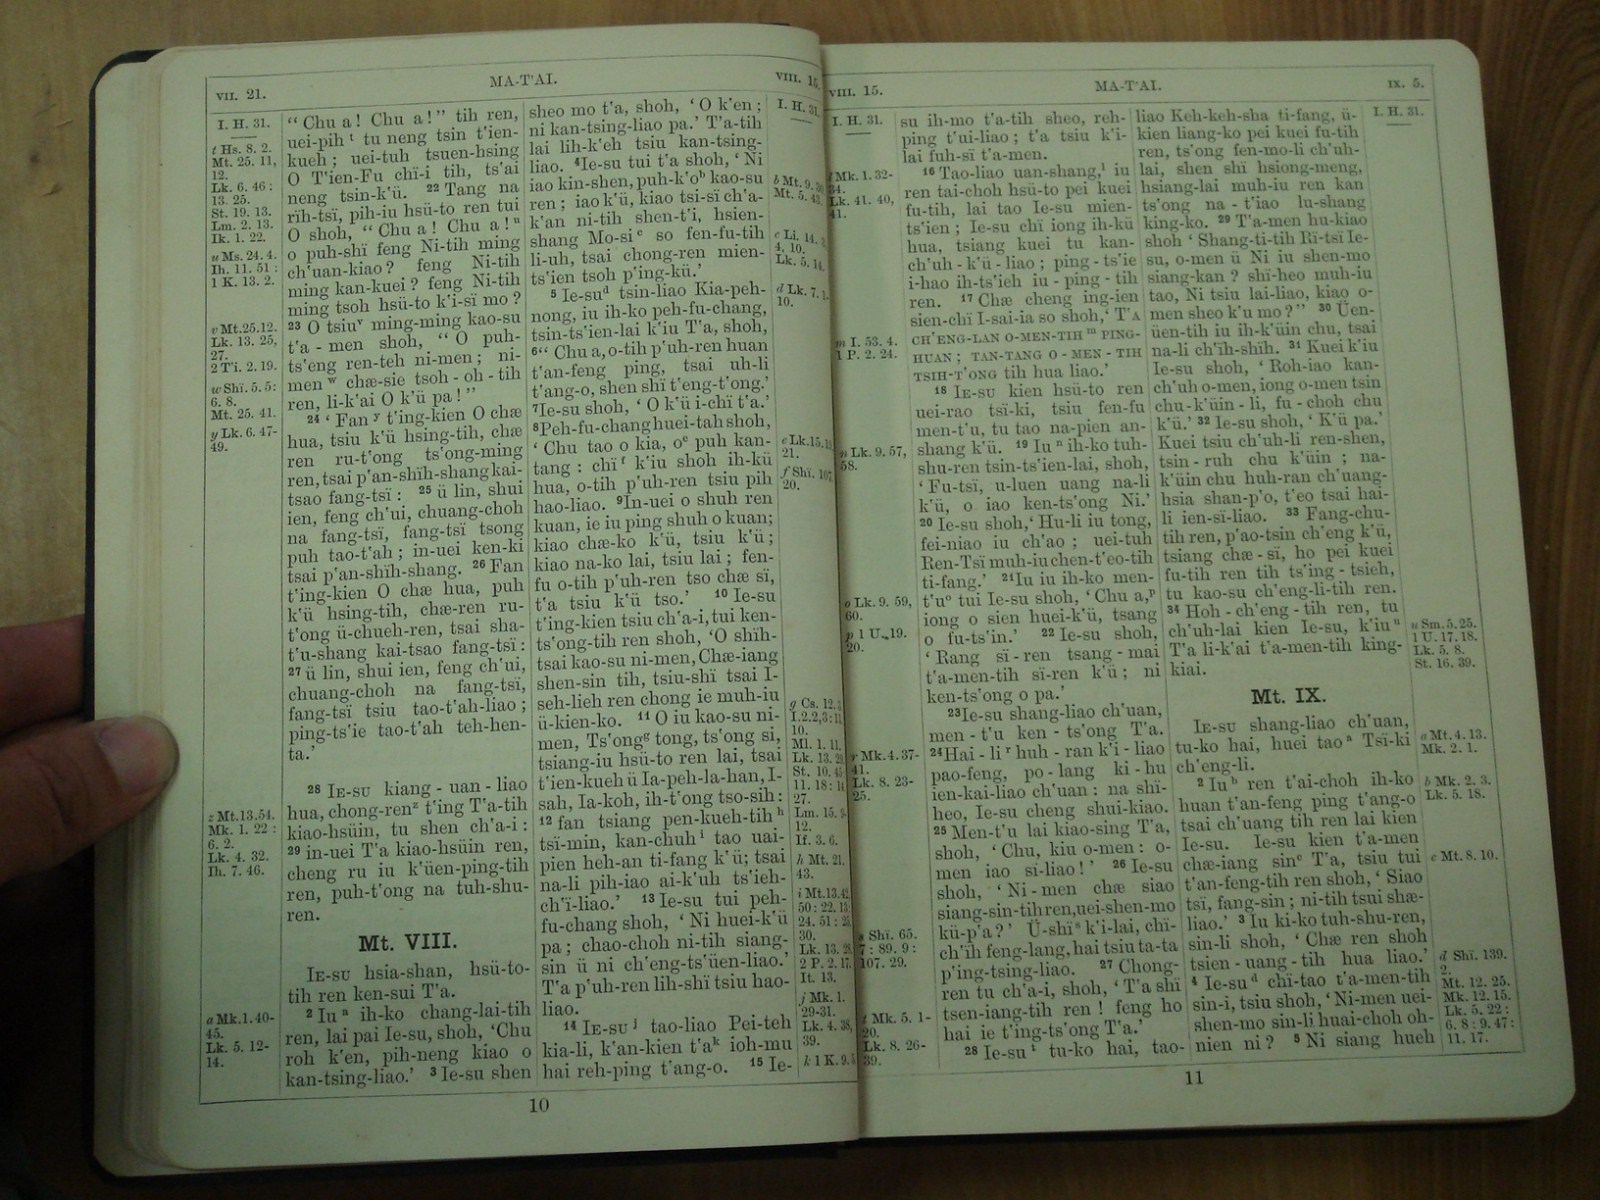 VII. 21.
MA-T'AI.
VIII. 15.
I. H. 31.
t Hs. 8. 2.
Mt. 25. 11,
12.
Lk. 6. 46 :
13. 25.
St. 19. 13.
Lm. 2. 13.
Ik. 1. 22.
u Ms. 24. 4.
Ih. 11. 51 :
1 K. 13. 2.
v Mt.25.12.
Lk. 13. 25,
27.
2 T'i. 2. 19.
w Shï. 5. 5:
6. 8.
Mt. 25. 41.
y Lk. 6. 47-
49.
z Mt.13.54.
Mk. 1. 22 :
6. 2.
Lk. 4. 32.
Ih. 7. 46.
a Mk.1.40-
45.
Lk. 5. 12-
14.
“ Chu a! Chu a!” tih ren,
uei-pih t tu neng tsin t'ien-
kueh ; uei-tuh tsuen-hsing
O T'ien-Fu chï-i tih, ts'ai
neng tsin-k'ü. 22 Tang na
rïh-tsï, pih-iu hsü-to ren tui
O shoh, “ Chu a! Chu a! u
o puh-shï feng Ni-tih ming
ch'uan-kiao? feng Ni-tih
ming kan-kuei? feng Ni-tih
ming tsoh hsü-to k'i-sï mo ?
23 O tsiu v ming-ming kao-su
t'a - men shoh, “ O puh-
ts'eng ren-teh ni-men ; ni-
men w chæ-sie tsoh - oh - tih
ren, li-k'ai O k'ü pa! ”
24 ‘ Fan y t'ing-kien O chæ
hua, tsiu k'ü hsing-tih, chæ
ren ru-t'ong ts'ong-ming
ren, tsai p'an-shïh-shang kai-
tsao fang-tsï : 25 ü lin, shui
ien, feng ch'ui, chuang-choh
na fang-tsï, fang-tsï tsong
puh tao-t'ah ; in-uei ken-ki
tsai p'an-shïh-shang. 26 Fan
t'ing-kien O chæ hua, puh
k'ü hsing-tih, chæ-ren ru-
t'ong ü-chueh-ren, tsai sha-
t'u-shang kai-tsao fang-tsï :
27 ü lin, shui ien, feng ch'ui,
chuang-choh na fang-tsï,
fang-tsï tsiu tao-t'ah-liao ;
ping-ts'ie tao-t'ah teh-hen-
ta.’
28 IE-SU kiang - uan - liao
hua, chong-ren z t'ing T'a-tih
kiao-hsüin, tu shen ch'a-i :
29 in-uei T'a kiao-hsüin ren,
cheng ru iu k'üen-ping-tih
ren, puh-t'ong na tuh-shu-
ren.
Mt. VIII.
IE-SU hsia-shan, hsü-to-
tih ren ken-sui T'a.
2 Iu a ih-ko chang-lai-tih
ren, lai pai Ie-su, shoh, ‘Chu
roh k'en, pih-neng kiao o
kan-tsing-liao.’ 3 Ie-su shen
sheo mo t'a, shoh, ‘ O k'en ;
ni kan-tsing-liao pa.’ T'a-tih
lai lih-k'eh tsiu kan-tsing-
liao. 4Ie-su tui t'a shoh, ‘ Ni
iao kin-shen, puh-k'o b kao-su
ren ; iao k'ü, kiao tsi-sï ch'a-
k'an ni-tih shen-t'i, hsien-
shang Mo-si c so fen-fu-tih
li-uh, tsai chong-ren mien-
ts'ien tsoh p'ing-kü.’
5 Ie-su d tsin-liao Kia-peh-
nong, iu ih-ko peh-fu-chang,
tsin-ts'ien-lai k'iu T'a, shoh,
6“ Chu a, o-tih p'uh-ren huan
t'an-feng ping, tsai uh-li
t'ang-o, shen shï t'eng-t'ong.’
7Ie-su shoh, ‘ O k'ü i-chï t'a.’
8Peh-fu-chang huei-tah shoh,
‘ Chu tao o kia, o e puh kan-
tang : chï f k'iu shoh ih-kü
hua, o-tih p'uh-ren tsiu pih
hao-liao. 9In-uei o shuh ren
kuan, ie iu ping shuh o kuan;
kiao chæ-ko k'ü, tsiu k'ü ;
kiao na-ko lai, tsiu lai ; fen-
fu o-tih p'uh-ren tso chæ sï,
t'a tsiu k'ü tso.’ 10 Ie-su
t'ing-kien tsiu ch'a-i, tui ken-
ts'ong-tih ren shoh, ‘O shïh-
tsai kao-su ni-men, Chæ-iang
shen-sin tih, tsiu-shï tsai I-
seh-lieh ren chong ie muh-iu
ü-kien-ko. 11 O iu kao-su ni-
men, Ts'ong g tong, ts'ong si,
tsiang-iu hsü-to ren lai, tsai
t'ien-kueh ü Ia-peh-la-han, I-
sah, Ia-koh, ih-t'ong tso-sih :
12 fan tsiang pen-kueh-tih h
tsï-min, kan-chuh i tao uai-
pien heh-an ti-fang k'ü; tsai
na-li pih-iao ai-k'uh ts'ieh-
ch'ï-liao.’ 13 Ie-su tui peh-
fu-chang shoh, ‘ Ni huei-k'ü
pa ; chao-choh ni-tih siang-
sin ü ni ch'eng-ts'üen-liao.’
T'a p'uh-ren lih-shï tsiu hao-
liao.
14 IE-SU j tao-liao Pei-teh
kia-li, k'an-kien t'a k ioh-mu
hai reh-ping t'ang-o. 15 Ie-
I. H. 31.
b Mt. 9. 30.
Mt. 5. 43.
c Li. 14. 3,
4, 10.
Lk. 5. 14.
d Lk. 7. 1-
10.
e Lk.15.19,
21.
f Shï. 107.
20.
g Cs. 12. 3.
I.2.2,3:11.
10.
Ml. 1. 11.
Lk. 13. 29.
St. 10. 45
11. 18: 14
27.
Lm. 15. 9-
12.
If. 3. 6.
h Mt. 21.
43.
i Mt.13.42,
50 : 22. 13:
24. 51 : 25.
30.
Lk. 13. 28.
2 P. 2. 17.
It. 13.
j Mk. 1.
29-31.
Lk. 4. 38,
39.
k 1 K. 9. 5.
10
VIII. 15.
MA-T'AI.
IX. 5.
I. H. 31.
l Mk. 1. 32-
34.
Lk. 41. 40,
41.
m I. 53. 4.
1 P. 2. 24.
n Lk. 9. 57,
58.
o Lk. 9. 59,
60.
p 1 U. 19.
20.
r Mk. 4. 37-
41.
Lk. 8. 23-
25.
s Shï. 65.
7 : 89. 9 :
107. 29.
t Mk. 5. 1-
20.
Lk. 8. 26-
39.
su ih-mo t'a-tih sheo, reh-
ping t'ui-liao ; t'a tsiu k'i-
lai fuh-sï t'a-men.
16 Tao-liao uan-shang, l iu
ren tai-choh hsü-to pei kuei
fu-tih, lai tao Ie-su mien-
ts'ien ; Ie-su chï iong ih-kü
hua, tsiang kuei tu kan-
ch'uh - k'ü - liao ; ping - ts'ie
i-hao ih-ts'ieh iu - ping - tih
ren. 17 Chæ cheng ing-ien
sien-chï I-sai-ia so shoh,‘ T'A
CH'ENG-LAN O-MEN-TIH m PING-
HUAN ; TAN-TANG O - MEN - TIH
TSIH-T'ONG tih hua liao.’
18 IE-SU kien hsü-to ren
uei-rao tsï-ki, tsiu fen-fu
men-t'u, tu tao na-pien an-
shang k'ü. 19 Iu n ih-ko tuh-
shu-ren tsin-ts'ien-lai, shoh,
‘ Fu-tsï, u-luen uang na-li
k'ü, o iao ken-ts'ong Ni.’
20 Ie-su shoh,‘ Hu-li iu tong,
fei-niao iu ch'ao ; uei-tuh
Ren-Tsï muh-iu chen-t'eo-tih
ti-fang.’ 21Iu iu ih-ko men-
t'u o tui Ie-su shoh, ‘ Chu a, p
iong o sien huei-k'ü, tsang
o fu-ts'in.’ 22 Ie-su shoh,
‘ Rang sï - ren tsang - mai
t'a-men-tih sï-ren k'ü ; ni
ken-ts'ong o pa.’
23Ie-su shang-liao ch'uan,
men - t'u ken - ts'ong T'a.
24Hai - li r huh - ran k'i - liao
pao-feng, po - lang ki - hu
ien-kai-liao ch'uan : na shï-
heo, Ie-su cheng shui-kiao.
25 Men-t'u lai kiao-sing T'a,
shoh, ‘ Chu, kiu o-men : o-
men iao si-liao! ’ 26 Ie-su
shoh, ‘ Ni - men chæ siao
siang-sin-tih ren, uei-shen-mo
kü-p'a ? ’ Ü-shï s k'i-lai, chï-
ch'ïh feng-lang, hai tsiu ta-ta
p'ing-tsing-liao. 27 Chong-
ren tu ch'a-i, shoh, ‘ T'a shï
tsen-iang-tih ren ! feng ho
hai ie t'ing-ts'ong T'a.’
28 Ie-su t tu-ko hai, tao-
liao Keh-keh-sha ti-fang, ü-
kien liang-ko pei kuei fu-tih
ren, ts'ong fen-mo-li ch'uh-
lai, shen shï hsiong-meng,
hsiang-lai muh-iu ren kan
ts'ong na - t'iao lu-shang
king-ko. 29 T'a-men hu-kiao
shoh ‘ Shang-ti-tih Rï-tsï Ie-
su, o-men ü Ni iu shen-mo
siang-kan ? shï-heo muh-iu
tao, Ni tsiu lai-liao, kiao o-
men sheo k'u mo ? ” 30 Üen-
üen-tih iu ih-k'üin chu, tsai
na-li ch'ïh-shïh. 31 Kuei k'iu
Ie-su shoh, ‘ Roh-iao kan-
ch'uh o-men, iong o-men tsin
chu-k'üin - li, fu - choh chu
k'ü.’ 32 Ie-su shoh, ‘ K'ü pa.’
Kuei tsiu ch'uh-li ren-shen,
tsin - ruh chu k'üin ; na-
k'üin chu huh-ran ch'uang-
hsia shan-p'o, t'eo tsai hai-
li ien-sï-liao. 33 Fang-chu-
tih ren, p'ao-tsin ch'eng k'ü,
tsiang chæ - sï, ho pei kuei
fu-tih ren tih ts'ing - tsieh,
tu kao-su ch'eng-li-tih ren.
34 Hoh - ch'eng - tih ren, tu
ch'uh-lai kien Ie-su, k'iu u
T'a li-k'ai t'a-men-tih king-
kiai.
Mt. IX.
IE-SU shang-liao ch'uan,
tu-ko hai, huei tao a Tsï-ki
ch'eng-li.
2 Iu b ren t'ai-choh ih-ko
huan t'an-feng ping t'ang-o
tsai ch'uang tih ren lai kien
Ie-su. Ie-su kien t'a-men
chæ-iang sin c T'a, tsiu tui
t'an-feng-tih ren shoh, ‘ Siao
tsï, fang-sin ; ni-tih tsui shæ-
liao.’ 3 Iu ki-ko tuh-shu-ren,
sin-li shoh, ‘ Chæ ren shoh
tsien - uang - tih hua liao.’
4 Ie-su d chï-tao t'a-men-tih
sin-i, tsiu shoh, ‘ Ni-men uei-
shen-mo sin-li huai-choh oh-
nien ni ? 5 Ni siang hueh
I. H. 31.
u Sm. 5. 25.
1 U. 17. 18.
Lk. 5. 8.
St. 16. 39.
a Mt. 4. 13.
Mk. 2. 1.
b Mk. 2. 3.
Lk. 5. 18.
c Mt. 8. 10.
d Shï. 139.
2.
Mt. 12. 25.
Mk. 12. 15.
Lk. 5. 22 :
6. 8 : 9. 47 :
11. 17.
11